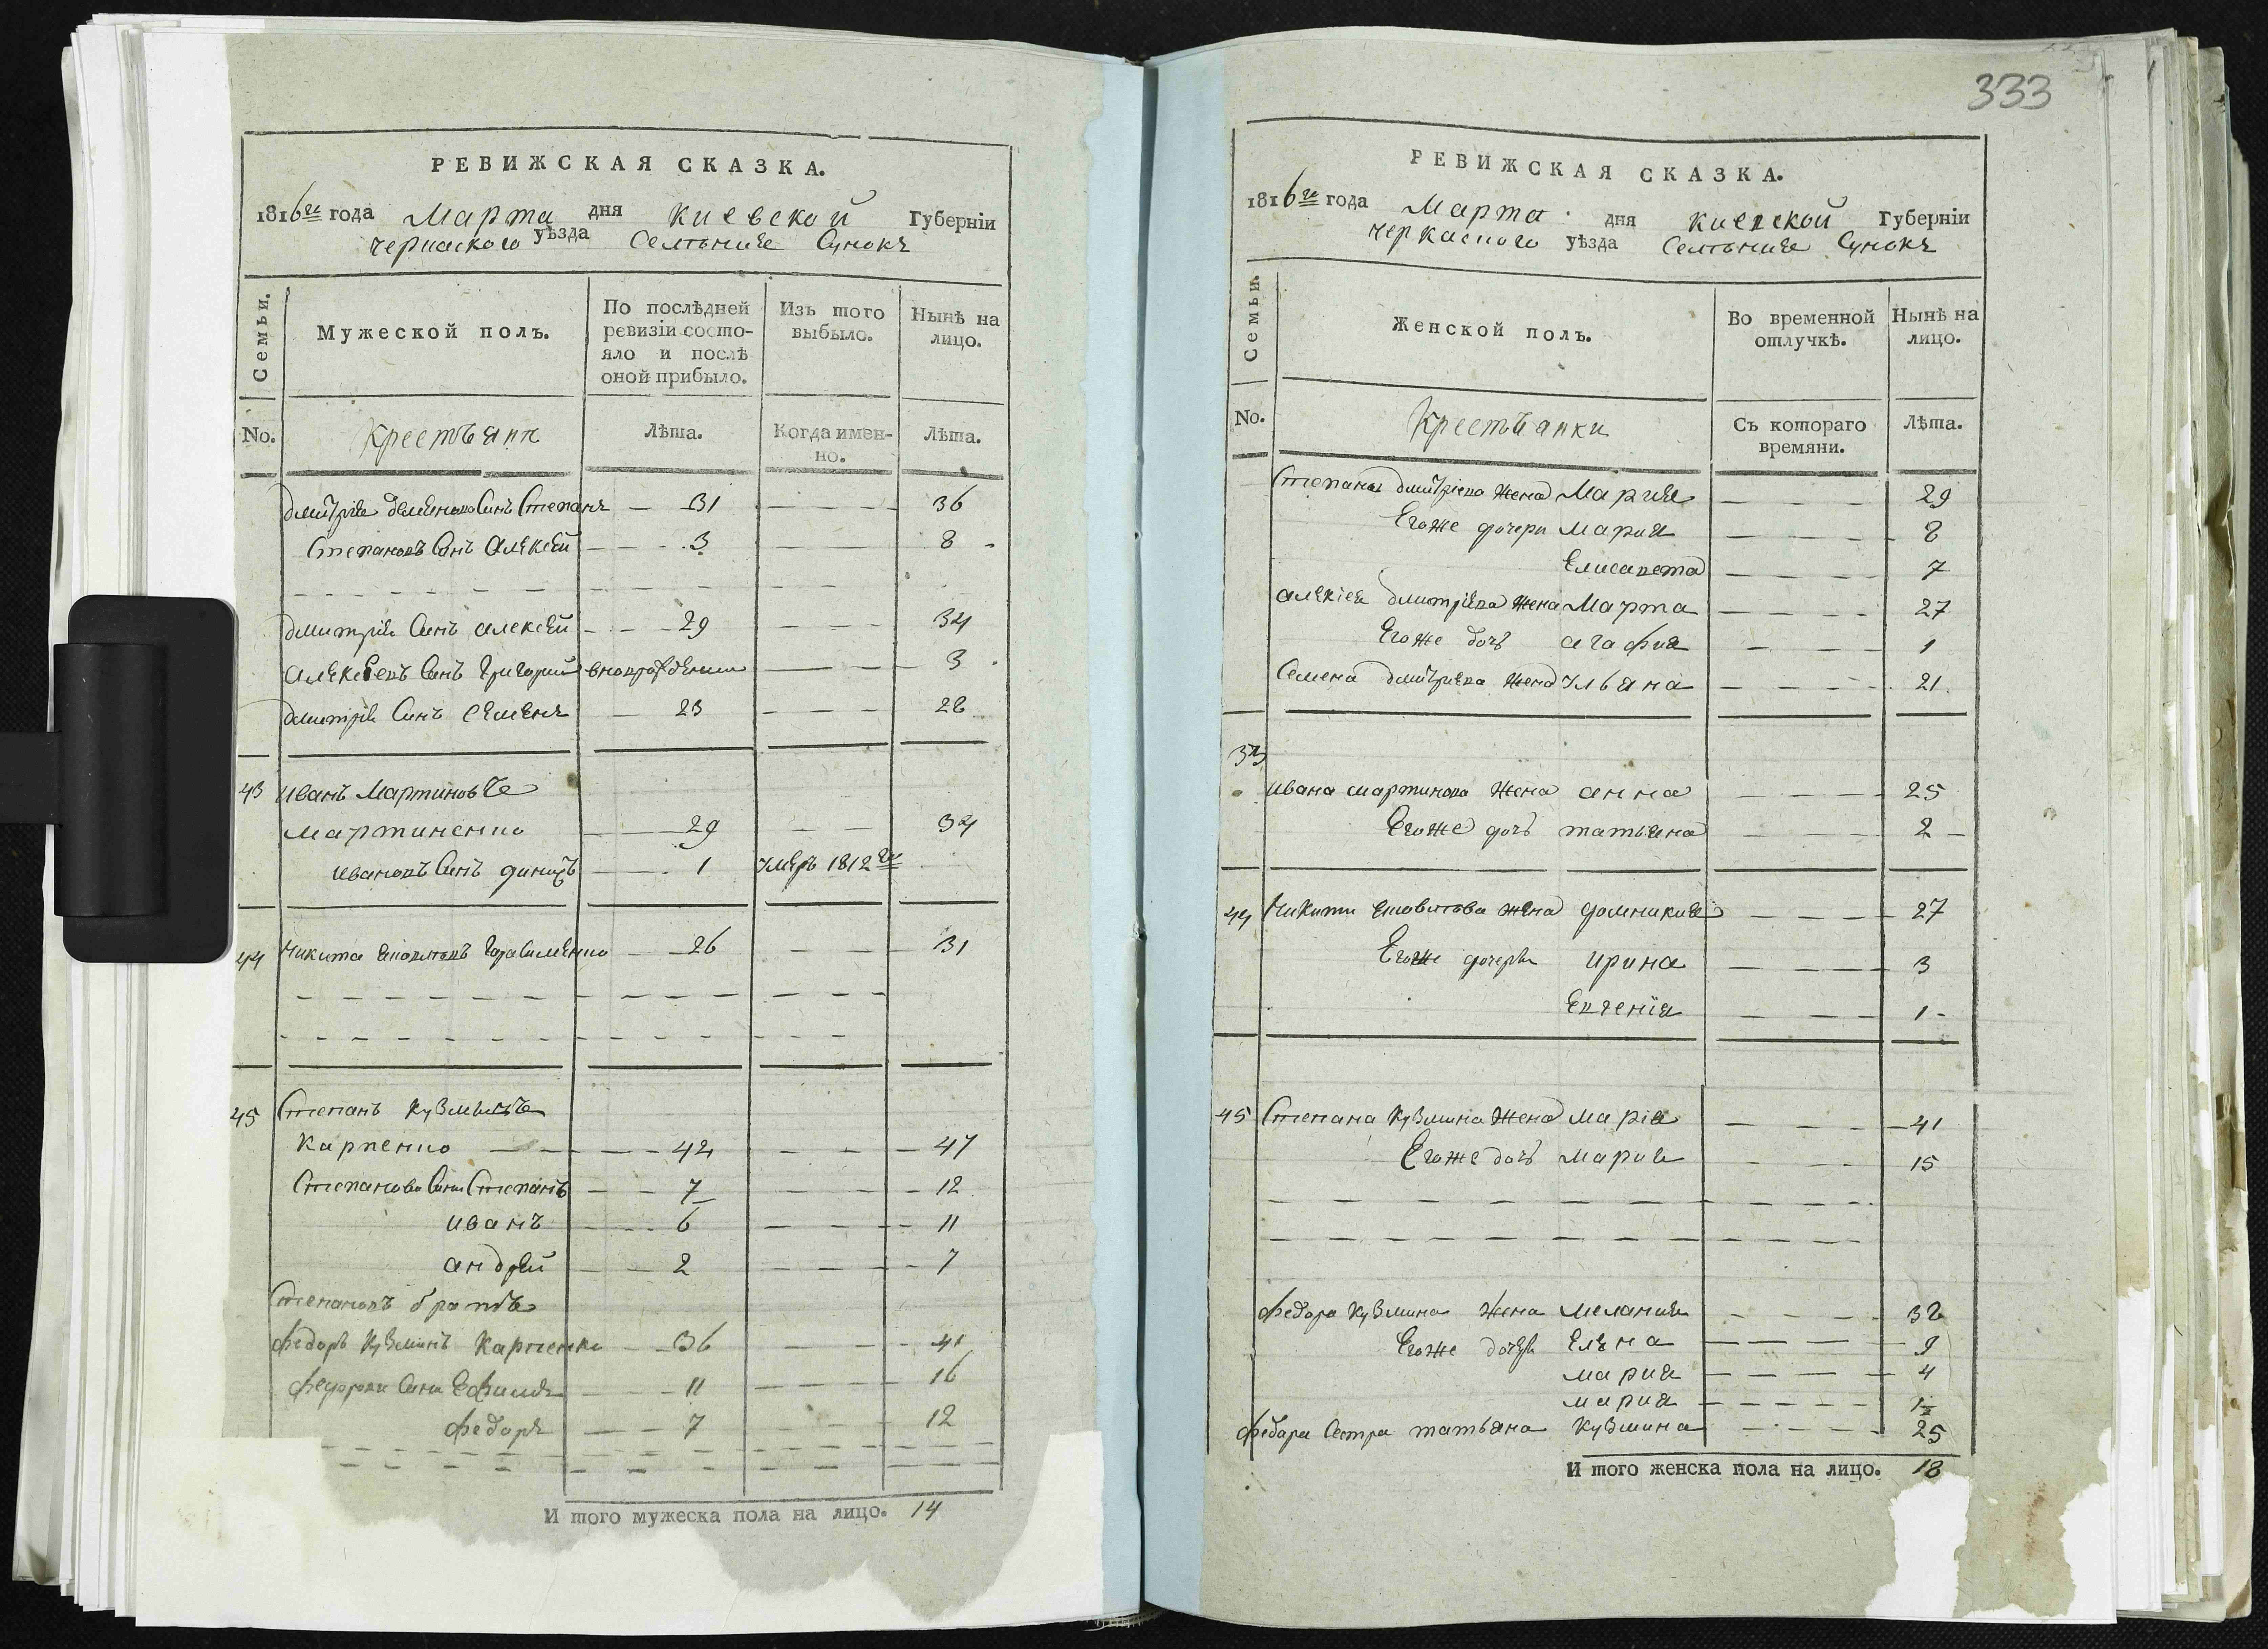 333
РЕВИЖСКАЯ СКАЗКА.
1816го года Марта дня Киевской Губерніи
черкаского уѣзда Селѣние Сунокъ
Семьи.
Мужеской полъ.
По послѣдней ревизіи состо-
яло и послѣ
оной прибыло.
Изъ того
выбыло.
Нынѣ на
лицо.
No.
Крестьяни
Лѣта.
Когда имен-
но.
Лѣта.
Дмитрія Семенова Синъ Степанъ 31 36
Степановъ Синъ Алексѣй 3 8
Дмитрія Синъ Алексѣй 29 34
Алексѣевъ Синъ Григорий 3
Дмитрія Синъ Семенъ 23 28
43 Иванъ Мартиновъ
Мартиненко 29 34
Ивановъ Синъ 1 умеръ 1812го
44 Никита 26 31
45 Степанъ Кузминъ
Карпенко 42 47
Степанова Сини Степанъ 7 12
Иванъ 6 11
Андрей 2 7
Степановъ братъ
Федоръ Кузминъ Карпенко 36 41
Федорови Сини Ефимъ 11 16
Федоръ 7 12
И того мужеска пола на лицо. 14
РЕВИЖСКАЯ СКАЗКА.
1816го года Марта дня Киевской Губерніи
черкаского уѣзда Селѣние Сунокъ
Семьи.
Женской полъ.
Во временной
отлучкѣ.
Нынѣ на
лицо.
No.
Крестьянки
Съ котораго
времяни.
Лѣта.
Степана Дмитріева Жена Мария 29
Егоже дочери Мария 8
Елисавета 7
Алексія Дмитріева Жена Марта 27
Егоже дочь Агафия 1
Семена Дмитріева Жена Ульяна 21
Ивана Мартинова Жена Анна 25
Егоже дочь Татьяна 2
44 Никити Жена Домникия 27
Егоже дочери Ирина 3
Евгенія 1
45 Степана Кузмина Жена Марія 41
Егоже дочь Мария 15
Федора Кузмина Жена Мелания 38
Егоже дочери Елена 9
Мария 4
Мария
Федора Сестра Татьяна Кузмина 25
И того женска пола на лицо. 18